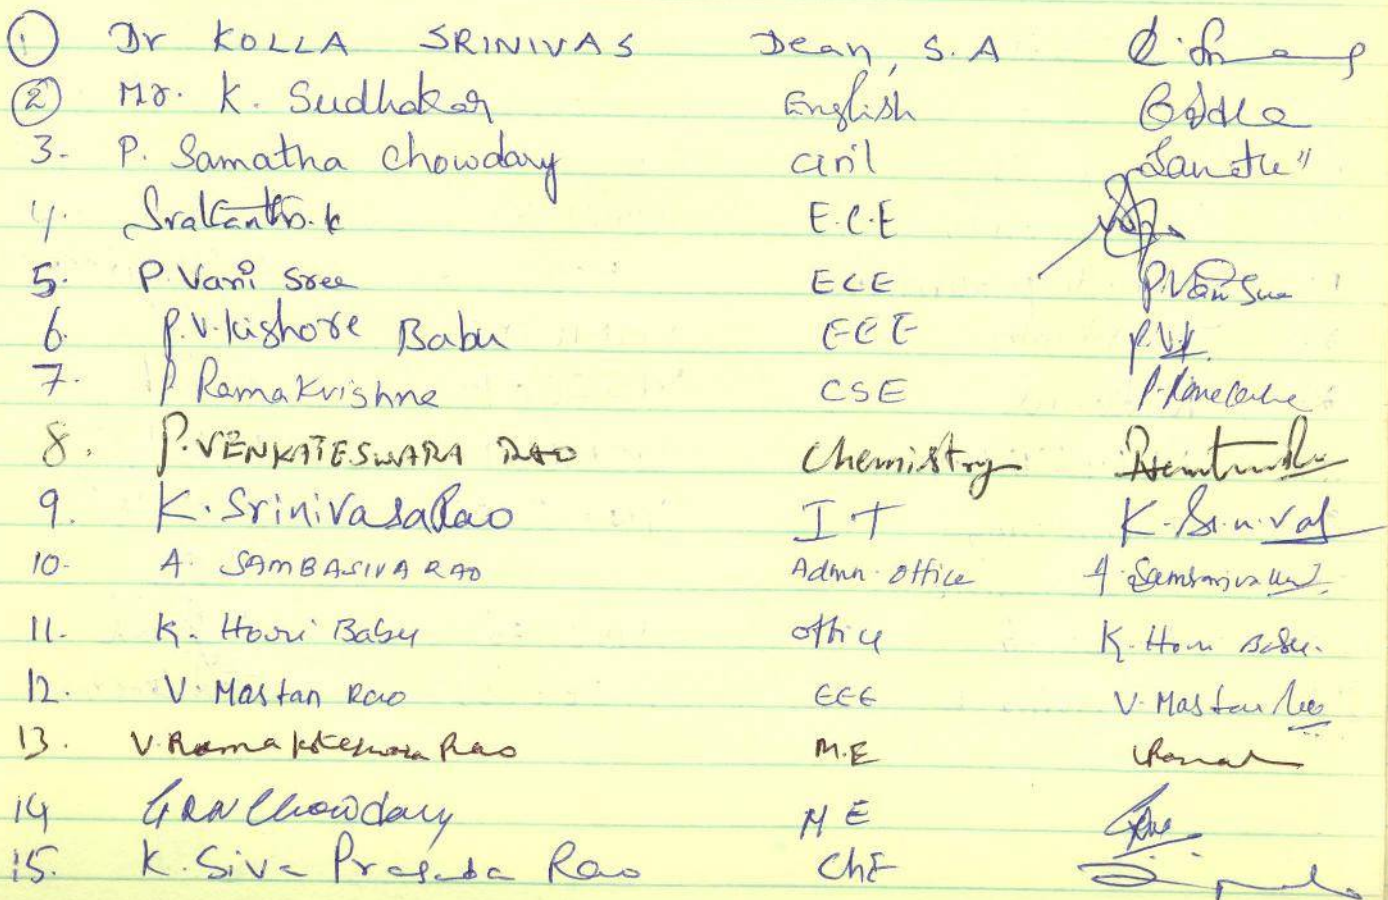 1 Dr KOLLA SRINIVAS Dean, S.A
2 Mr. K. Sudhakar English
3- P. Samatha Chowdary Civil
4. Srikanth.k E.C.E
5. P. Vani Sree ECE P. Vani Sree
6. P.V. Kishore Babu EEE P.V.K.
7. P Ramakrishna CSE P. Ramakrishna
8. P. VENKATESWARA RAO Chemistry
9. K. Srinivasa Rao IT K. Srinivas
10- A. SAMBASIVA RAO Admn. office A. Sambasiva Rao
11- K. Hari Babu office K. Hari Babu.
12. V. Mastan Rao EEE V. Mastan Rao
13. V. Rama Koteswara Rao M.E
14 GRN Chowdary ME
15. K. Siva Prasada Rao ChE